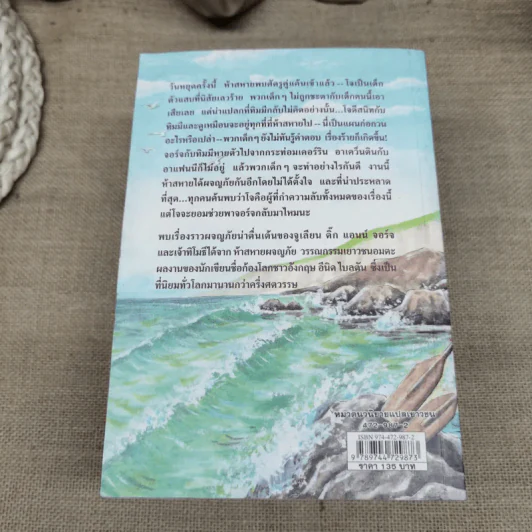 วันหยุดครั้งนี้ ห้าสหายพบศัตรูคู่แค้นเข้าแล้ว – โจเป็นเด็ก
ตัวแสบที่นิสัยเลวร้าย พวกเด็กๆ ไม่ถูกชะตากับเด็กคนนี้เอา
เสียเลย แต่น่าแปลกที่ทิมมีกลับไม่คิดอย่างนั้น...โจตีสนิทกับ
ทิมมีและดูเหมือนจะอยู่ทุกที่ที่ห้าสหายไป – นี่เป็นแผนก่อกวน
อะไรหรือเปล่า – พวกเด็กๆ ยังไม่ทันรู้คำตอบ เรื่องร้ายก็เกิดขึ้น!
จอร์จกับทิมมีหายตัวไปจากกระท่อมเคอร์ริน อาเควินตินกับ
อาแฟนนีก็ไม่อยู่ แล้วพวกเด็กๆ จะทำอย่างไรกันดี งานนี้
ห้าสหายได้ผจญภัยกันอีกโดยไม่ได้ตั้งใจ และที่น่าประหลาด
ที่สุด...ทุกคนค้นพบว่าโจคือผู้ที่กำความลับทั้งหมดของเรื่องนี้
แต่โจจะยอมช่วยพาจอร์จกลับมาไหมนะ
พบเรื่องราวผจญภัยน่าตื่นเต้นของจูเลียน ดิ๊ก แอนน์ จอร์จ
และเจ้าทิโมธีได้จาก ห้าสหายผจญภัย วรรณกรรมเยาวชนอมตะ
ผลงานของนักเขียนชื่อก้องโลกชาวอังกฤษ อีนิด ไบลตัน ซึ่งเป็น
ที่นิยมทั่วโลกมานานกว่าครึ่งศตวรรษ
หมวดนวนิยายแปลเยาวชน
ISBN 974-472-987-2
9 789744 729873
ราคา 138 บาท